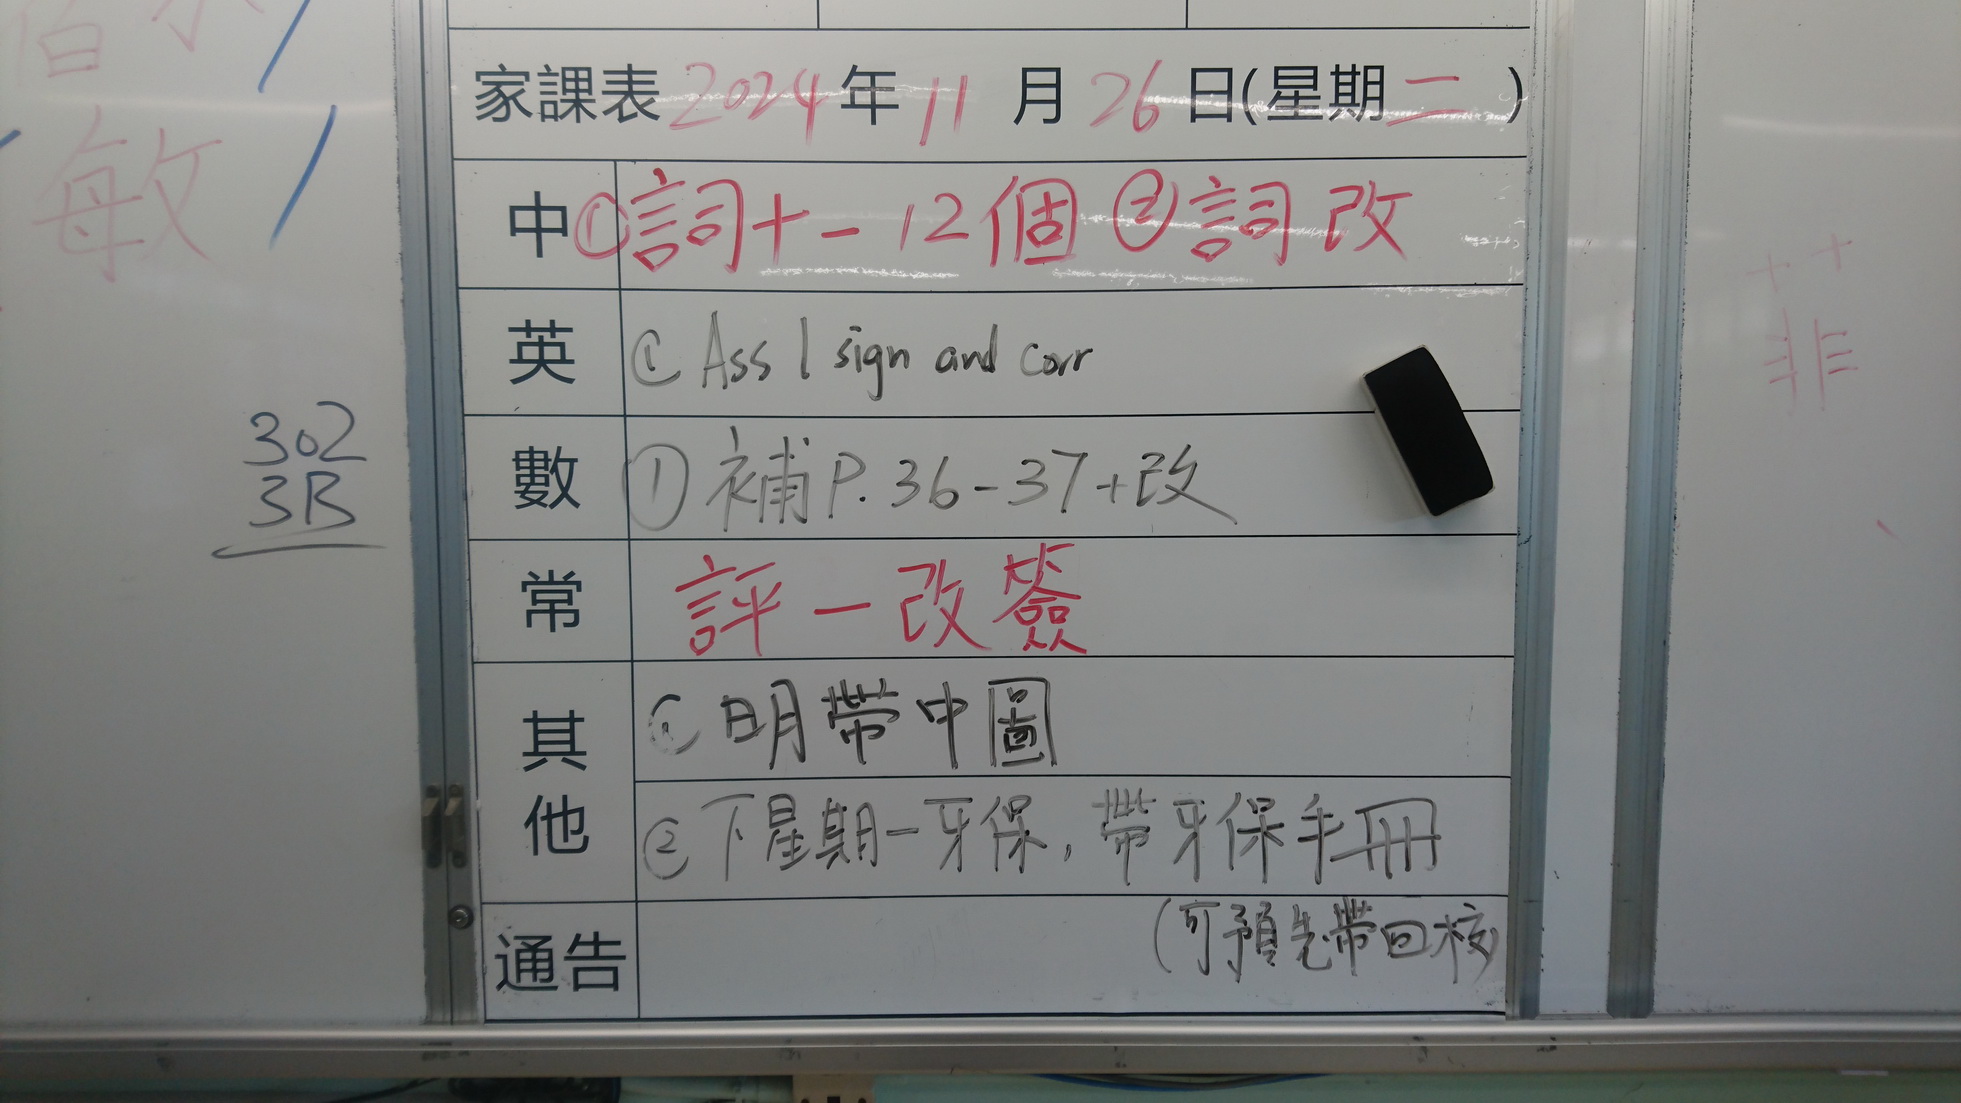 敏
302
3B
家課表 2024年 11 月 26 日(星期二)
中 ①詞十一 12個 ②詞改
英 ① Ass 1 sign and corr
數 ① 補 P. 36-37+改
常 評一改簽
其他 ① 明帶中圖
② 下星期一牙保,帶牙保手冊
(可預先帶回校)
通告
++
非